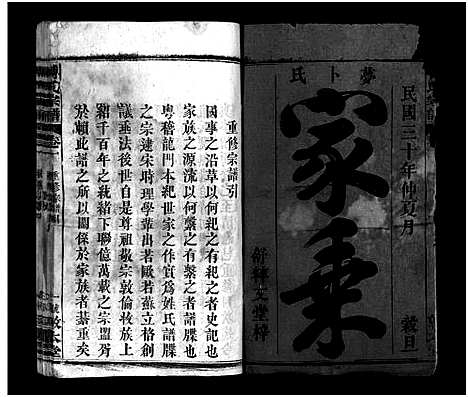 民國三十年仲夏月
穀旦
夢卜氏
家乘
舒緯文堂梓
重修宗譜引
國事之沿革以何祀之有祀之者史記也
家族之源流以何槃之有槃之者譜牒也
粵稽龍門本紀世家之作實爲姓氏譜牒
之宗逮宋時理學輩出若歐若蘇立格創
議垂法後世自是尊祖敬宗敦倫收族上
紹千百年之統緒下聯億萬載之宗盟胥
於頼此譜之所以關係於家族者綦重矣
宗譜
卷一
重修宗譜引